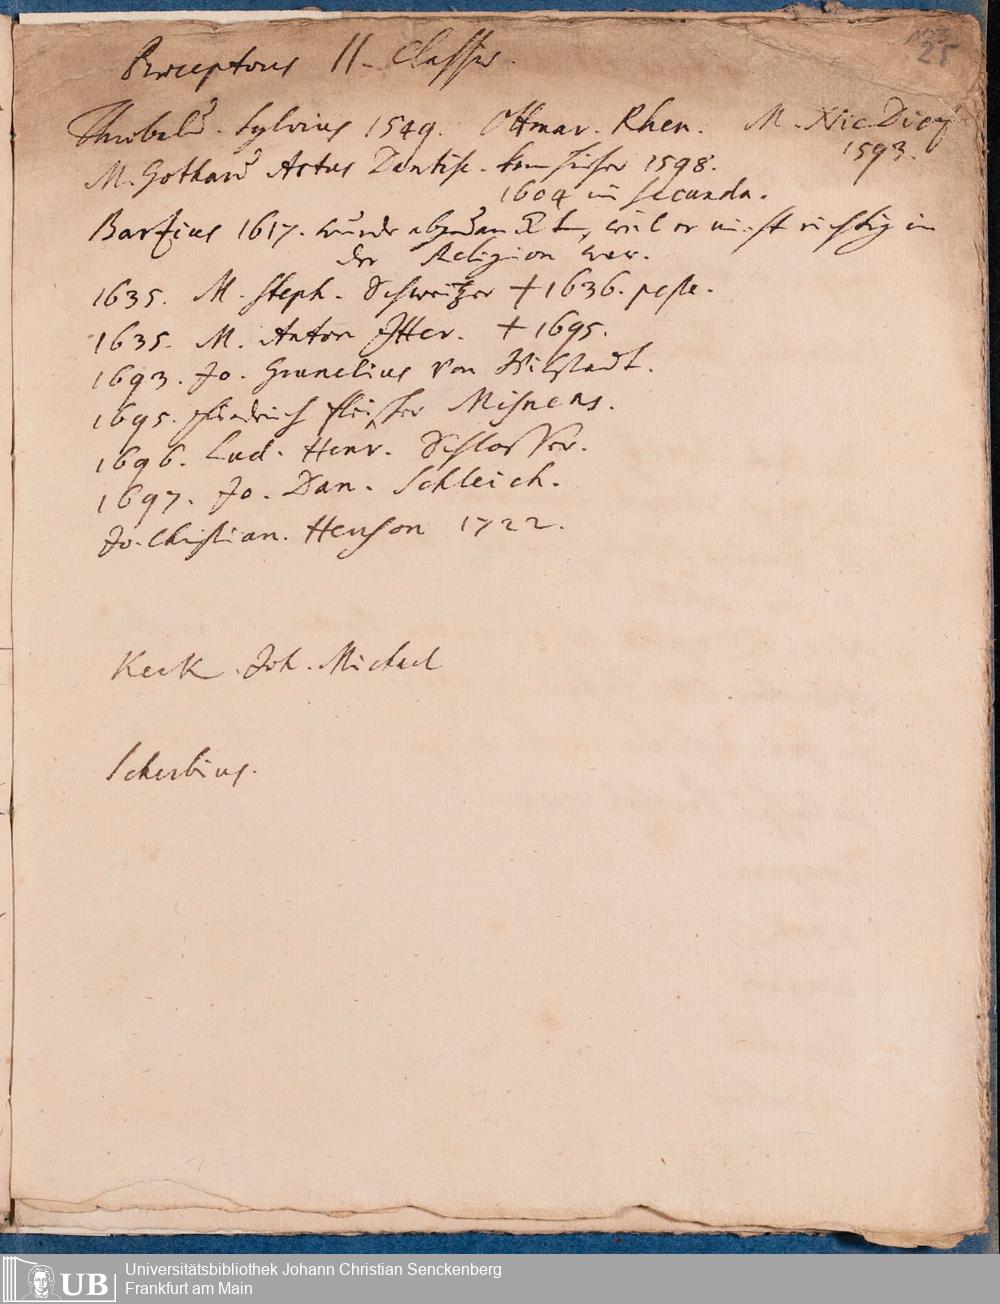 123
25
Praeceptores II. Classis.
Theobald. Sylvius 1549. Ottmar. Rhen. M. Nic. Dicy
1593.
M. Gothard Artus Dantisc. kam hieher 1598.
1604 in secunda.
Barzius 1617. wurde abgedankt, weil er nicht richtig in
der Religion war.
1635. M. Steph. Schweitzer † 1636. peste.
1635. M. Anton Itter. † 1695.
1693. Jo. Grunelius von Wilstadt.
1695. Friedrich Fleischer Misnens.
1696. Lud. Henr. Schlosser.
1697. Jo. Dan. Schleich.
Jo. Christian. Henson 1722.
Keck. Joh. Michael
Scherbius.
UB Universitätsbibliothek Johann Christian Senckenberg
Frankfurt am Main